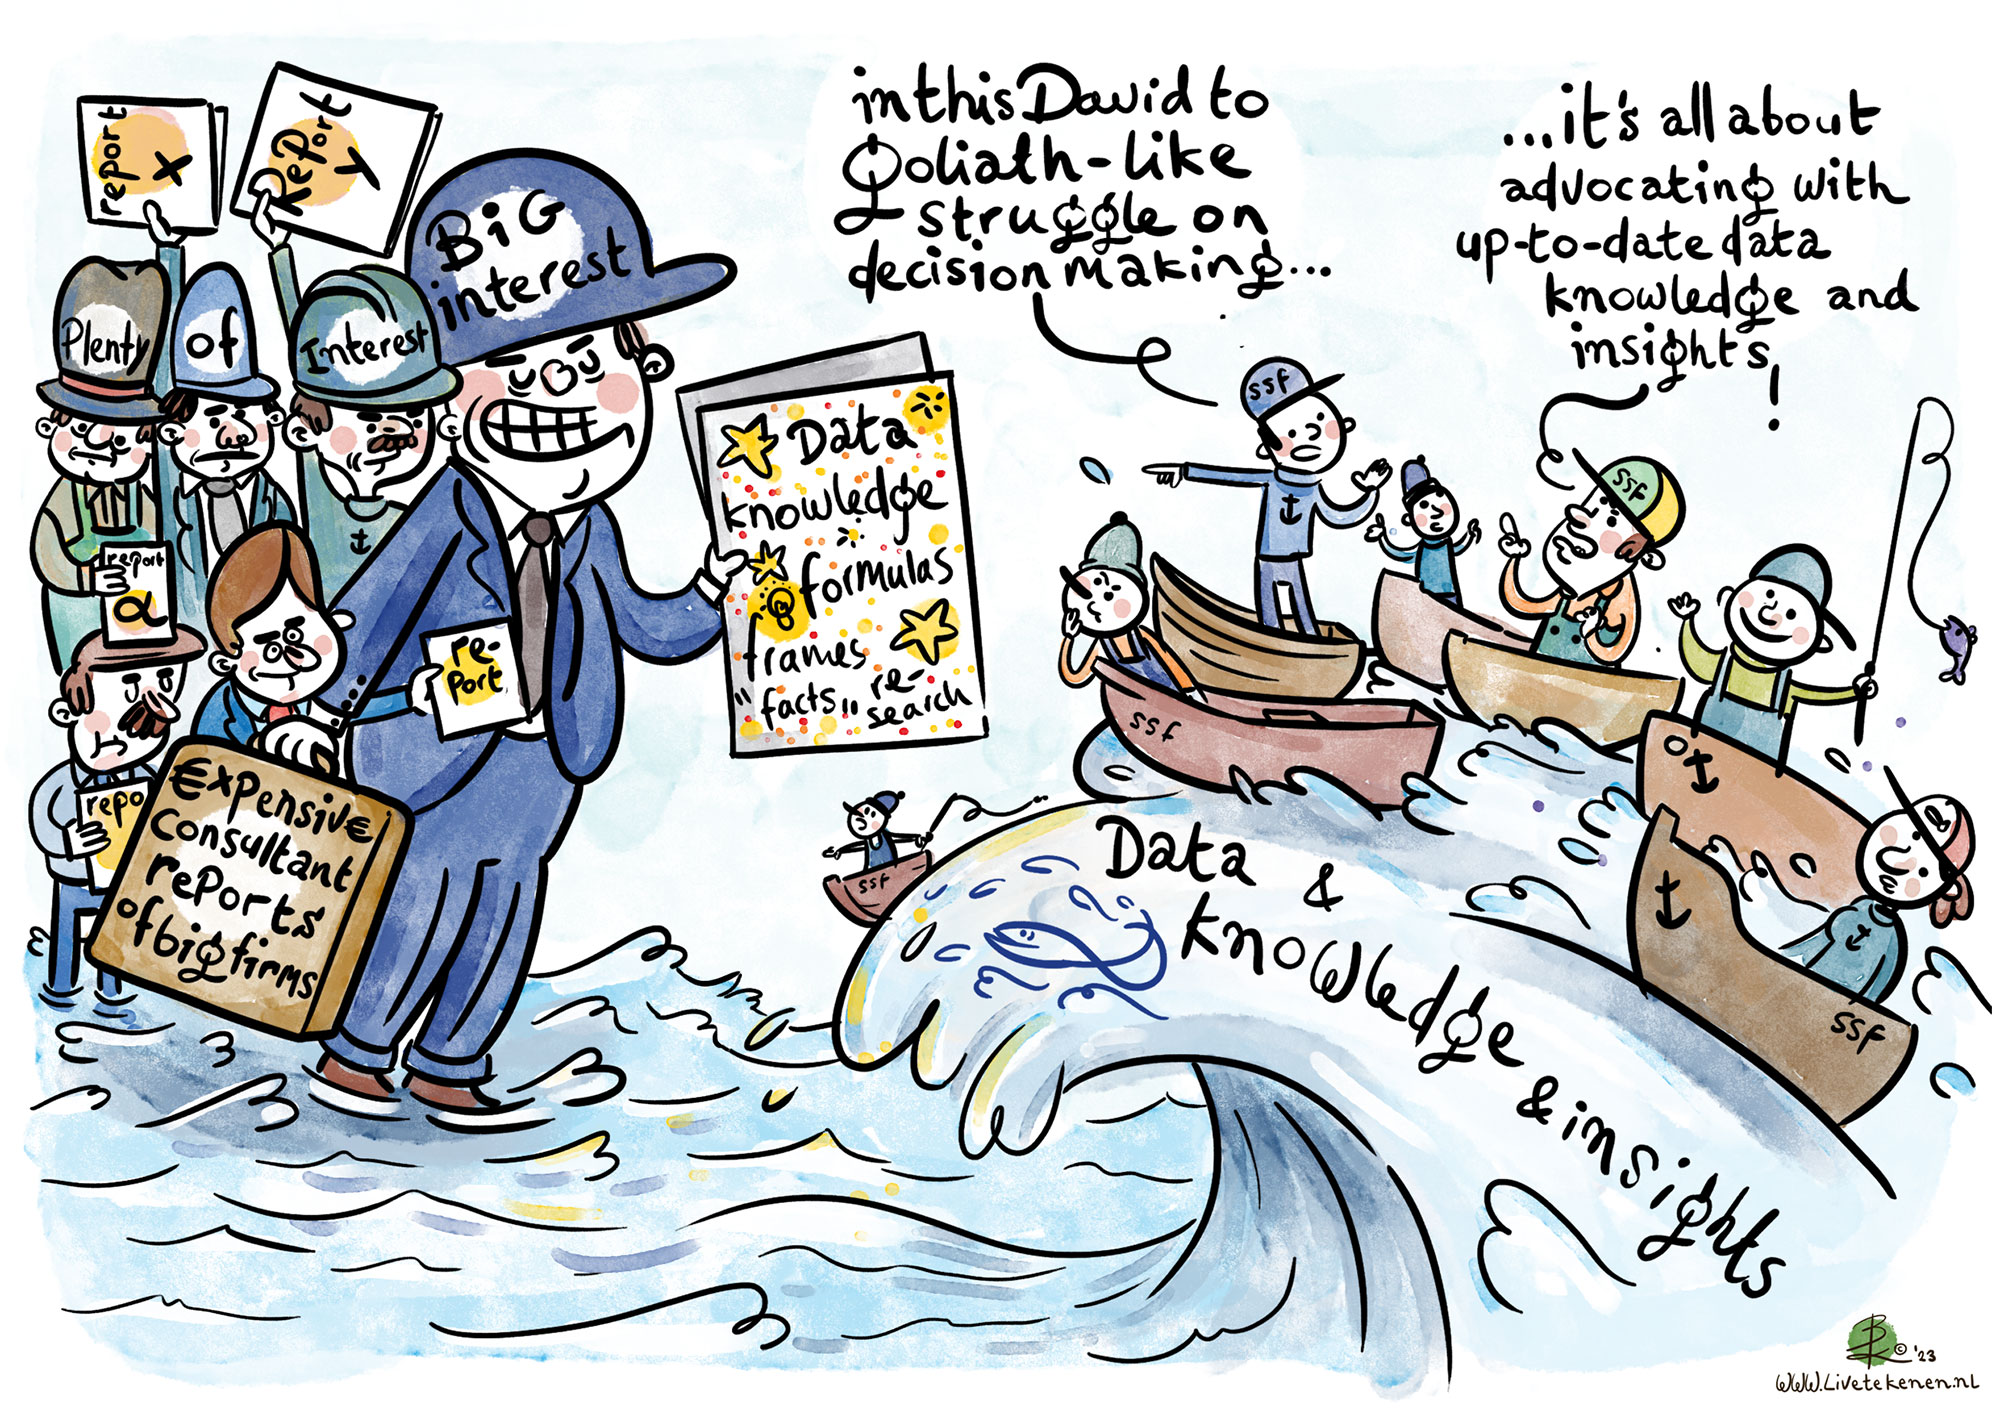 report
X
Report
Y
BiG
interest
Plenty
of
Interest
report
α
re-
port
repo
€xpensiv€
consultant
rePorts
of big firms
Data
knowledge
formulas
frames
"facts"
re-
search
in this David to
Goliath-like
struggle on
decision making...
...it's all about
advocating with
up-to-date data
knowledge and
insights!
ssf
ssf
ssf
ssf
ssf
Data
&
knowledge
& insights
© '23
www.Livetekenen.nl